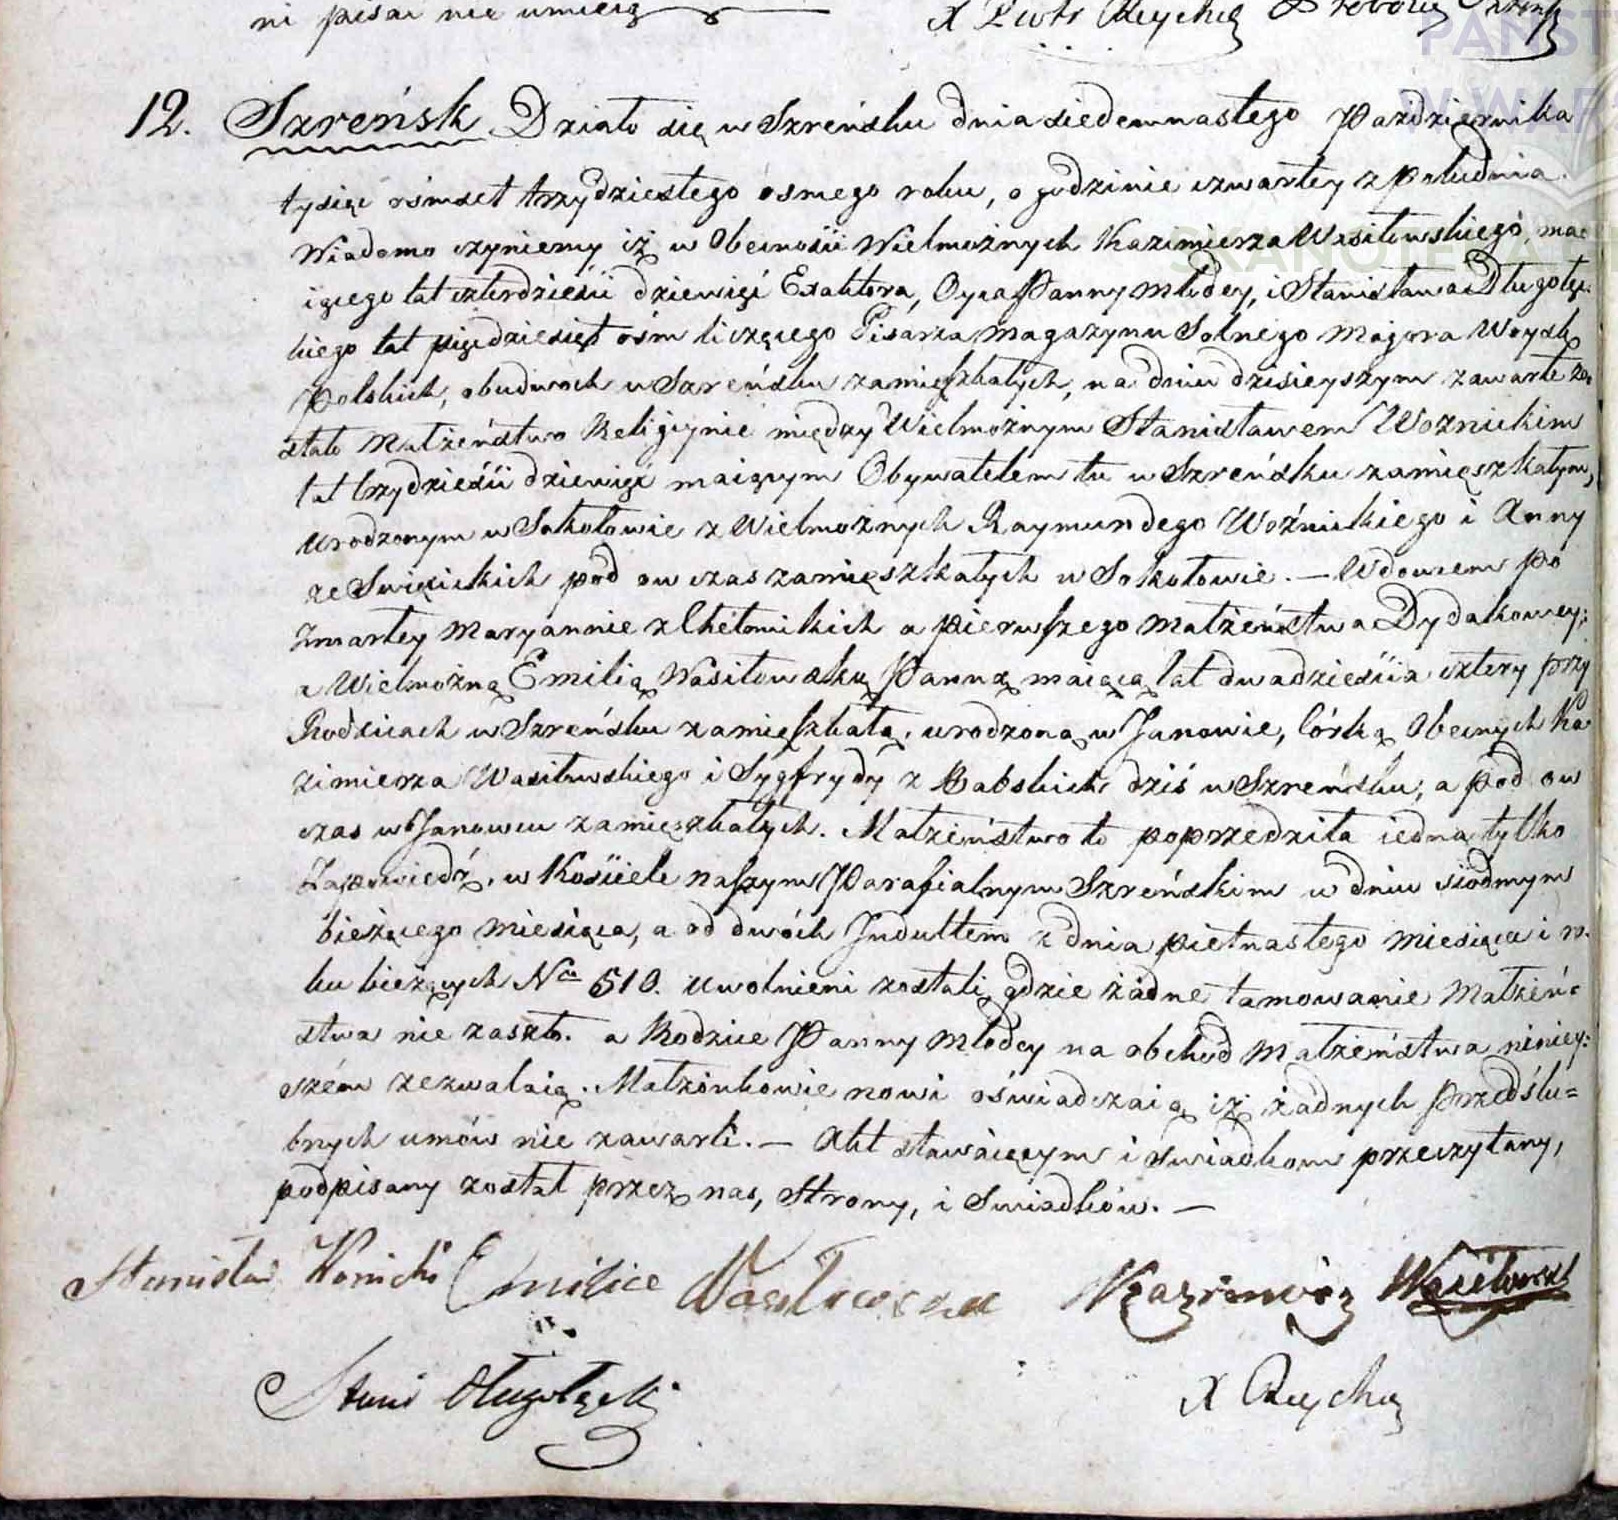 ni pisać nie umieią
X Piotr Rzychę Proboszcz Szreńs
12. Szreńsk Działo się w Szreńsku dnia siedemnastego Pazdziernika
tysiąc ośmset trzydziestego osmego roku, o godzinie czwartey z południa.
Wiadomo czyniemy iż w Obecności Wielmożnych Kazimierza Wasiłowskiego, ma-
iącego lat czterdzieści dziewięć Exaktora, Oyca Panny Młodey, i Stanisława Długołęc-
kiego lat pięćdziesiąt ośm liczącego Pisarza Magazynu Solnego Majora Woysk
Polskich, obudwóch w Szreńsku zamięszkałych, na dniu dzisieyszym zawarte zo-
stało Małżeństwo Religijnie między Wielmożnym Stanisławem Woznickim
lat trzydzieści dziewięć maiącym Obywatelem tu w Szreńsku zamięszkałym,
urodzonym w Sokołowie z Wielmożnych Raymundego Woźnickiego i Anny
ze Swięcickich pod ów czas zamięszkałych w Sokołowie. — Wdowcem po
Zmarłey Maryannie z Chełmickich a pierwszego małżeństwa Dydakowey;
a Wielmożną Emilią Wasiłowską Panną maiącą lat dwadzieścia cztery przy
Rodzicach w Szreńsku zamieszkałą, urodzoną w Janowie, Córką Obecnych Ka-
zimierza Wasiłowskiego i Sygfrydy z Babskich dziś w Szreńsku, a pod ów
czas w Janowcu zamięszkałych. Małżeństwo to poprzedziła iedna tylko
Zapowiedź, w Kościele naszym Parafialnym Szreńskim w dniu siódmym
bieżącego miesiąca, a od dwóch Indultem z dnia piętnastego miesiąca i ro-
ku bieżących No 510. uwolnieni zostali, gdzie żadne tamowanie Małżeń-
stwa nie zaszło. a Rodzice Panny Młodey na obchód Małżeństwa niniey-
szém zezwalaią. Małżonkowie nowi oświadczaią iż żadnych przedślu-
bnych umów nie zawarli. — Akt stawaiącym i swiadkom przeczytany,
podpisany został przez nas, Strony, i Swiadków. —
Stanisław Wonicki Emilia Wasiłowska Kazimirz Wasiłowski
Stani Długołęcki
X Rzychę